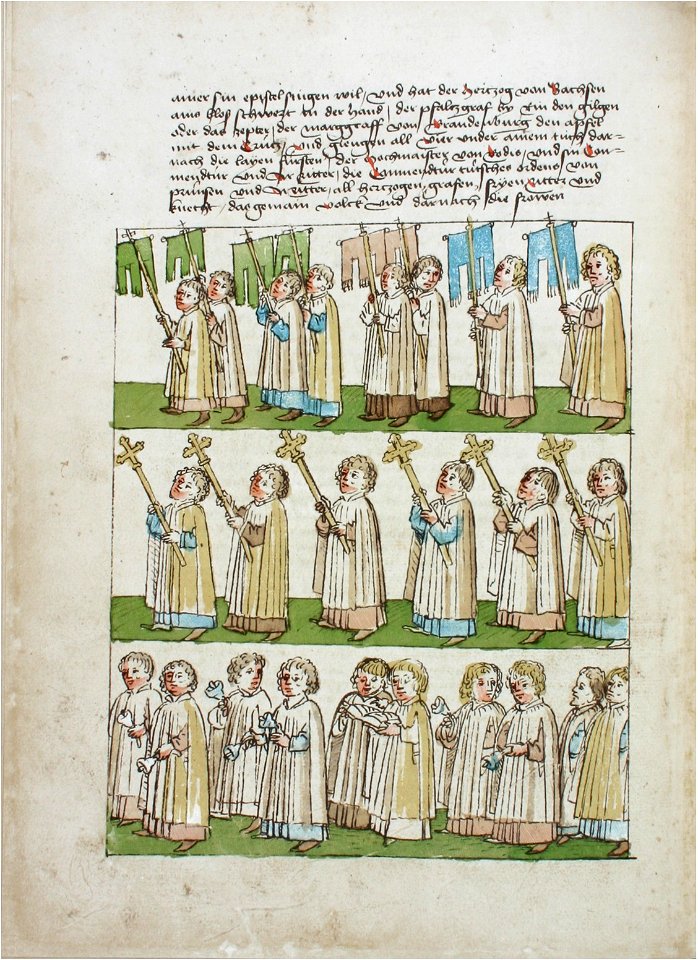 ainer sin epistel singen wil / und hat der hertzog von Sachsen
ain blos schwert in der hand / der pfaltzgraf by Rin den gilgen
oder das zepter / der marggraff von Brandenburg den apfel
mit dem Crütz / und giengen all vier under ainem tuch dar-
nach die layen fürsten / der hochmaister von Rodis / und sin Com-
mendtür und Ritter / die Commendtür tütsches ordens von
prüssen und Ritter / all hertzogen / grafen / fryen Ritter und
knecht / das gemain volck und darnach die frowen